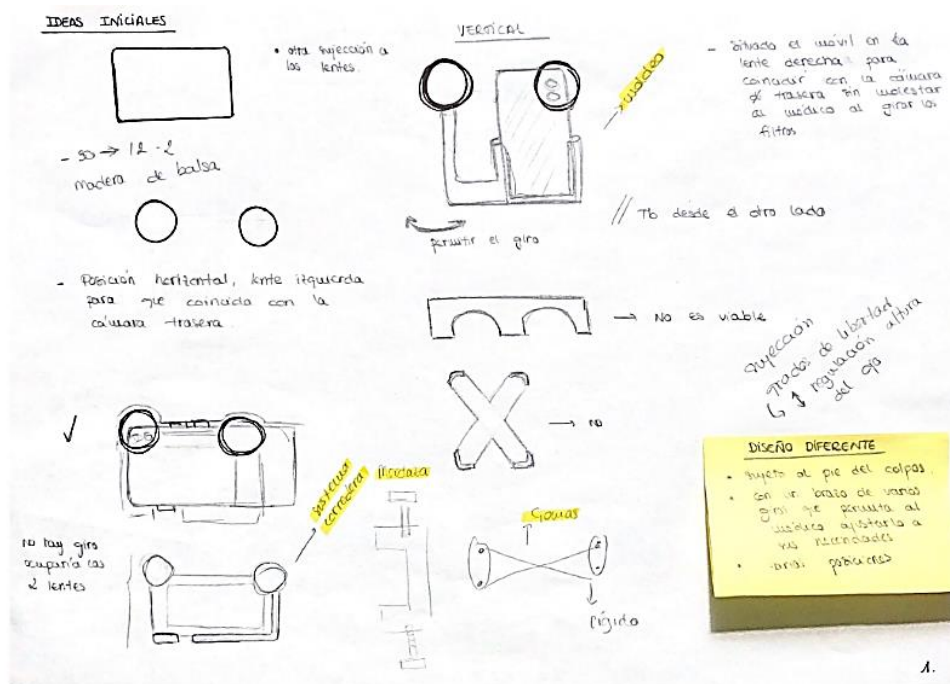 IDEAS INICIALES
• otra sujección a
los lentes.
- 50 → 12 - 2
madera de balsa
- Posición horizontal, lente izquierda
para que coincida con la
cámara trasera.
✓
no hay giro
ocuparía las
2 lentes
sistema
corredera
VERTICAL
→ moldeo
permitir el giro
- Situado el móvil en la
lente derecha para
coincidir con la cámara
trasera sin molestar
al médico al girar los
filtros
// Tb desde el otro lado
→ No es viable
→ no
Mordaza
Gomas
rígido
sujección
grados de libertad
↳ ↕ regulación altura
del ojo
DISEÑO DIFERENTE
• sujeto al pie del colpos.
• con un brazo de varios
giros que permita al
médico ajustarlo a
sus necesidades
• varias posiciones
1.